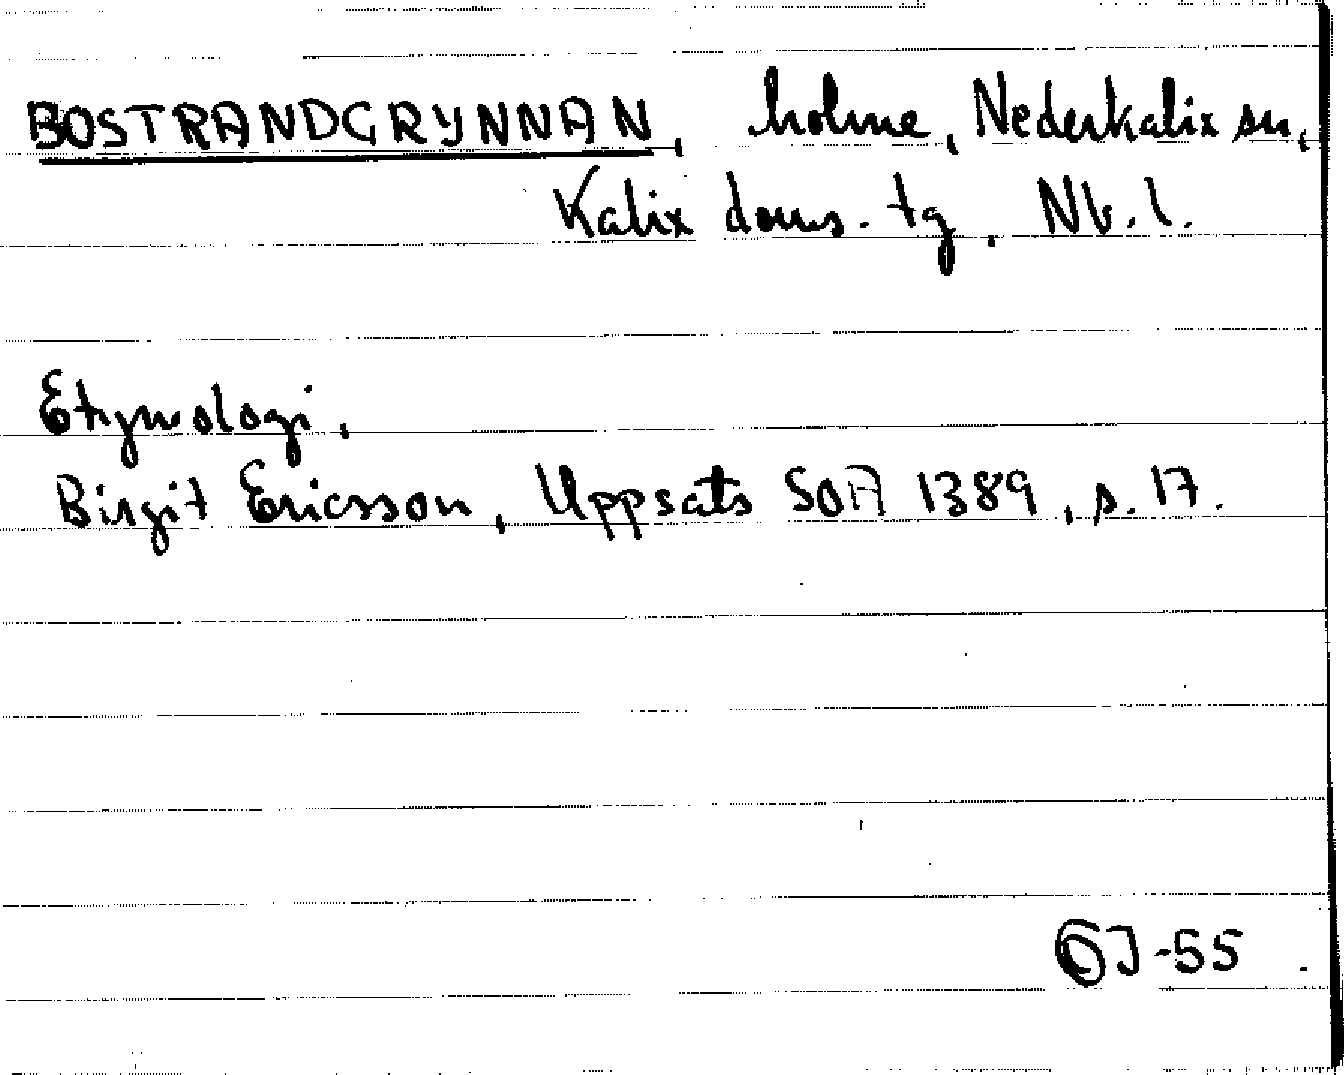 BOSTRANDGRYNNAN, holme, Nederkalix sn,
Kalix doms. tg, Nb. l.
Etymologi,
Birgit Ericsson, Uppsats SOA 1389, s. 17.
OJ-55